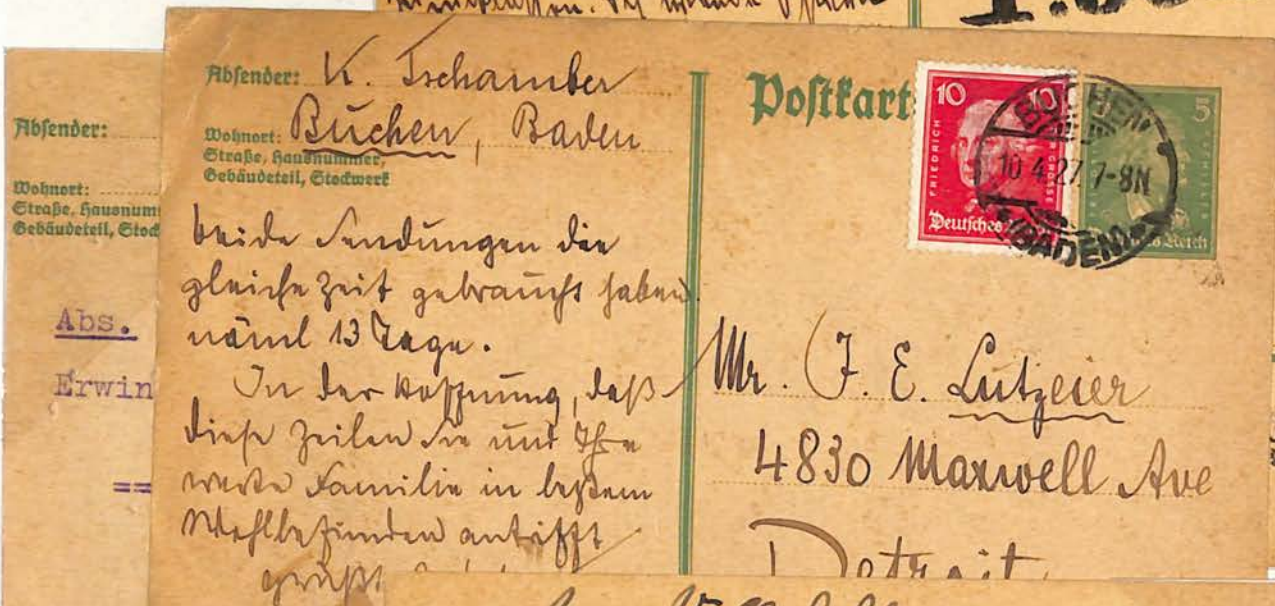 Absender:
Wohnort:
Abs.
Erwin
==
Absender: K. Tschamber
Wohnort: Buchen, Baden
Straße, Hausnummer,
Gebäudeteil, Stockwerk
beide Sendungen die
gleiche Zeit gebraucht haben
näml 13 Tage.
In der Hoffnung, daß
diese Zeilen Sie und Ihre
werte Familie in bestem
Wohlbefinden antrifft
grüßt
Postkart
10 10
FRIEDRICH DER GROSSE
Deutsches
5
Reich
BUCHEN
10.4.27. 7-8N
(BADEN)
Mr. F. E. Lutzeier
4830 Maxwell Ave
Detroit